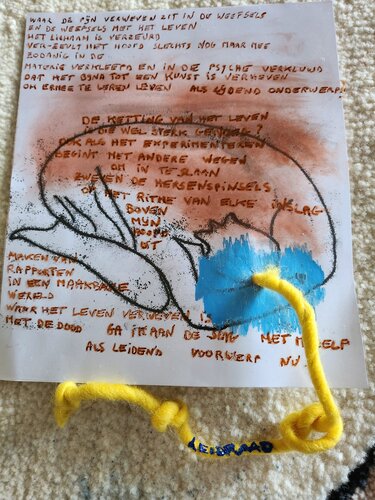 WAAR DE PIJN VERWEVEN ZIT IN DE WEEFSELS
EN DE WEEFSELS MET HET LEVEN
HET LICHAAM IS VERZEURD
HET HOOFD SLECHTS NOG MAAR MEE
ZODANIG IN DE
MATERIE VERKLEEFD EN IN DE PSYCHE VERKLUWD
DAT HET BIJNA TOT EEN KUNST IS VERHEVEN
OM ERMEE TE LEREN LEVEN ALS LIJDEND ONDERWERP!!
DE KETTING VAN HET LEVEN
IS DIE WEL STERK GENOEG?
OOK ALS HET EXPERIMENTEREN
BEGINT MET ANDERE WEGEN
OM IN TE SLAAN
ZWEVEN DE HERSENSPINSELS
OP HET RITME VAN ELKE INSLAG
BOVEN
MIJN
HOOFD
UIT
MAKEN VAN
RAPPORTEN
IN EEN MAAKBARE
WERELD
WAAR HET LEVEN VERWEVEN IS
MET DE DOOD GA IK AAN DE SLAG MET MEZELF
ALS LEIDEND VOORWERP NU
LEIDRAAD